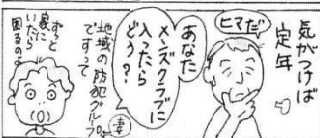 気がつけば
定年
ヒマだ
あなた
メンズクラブに
入ったら
どう?
地域の防犯グループ
ですって
妻
ずっと
家に
いたら
困るのよ